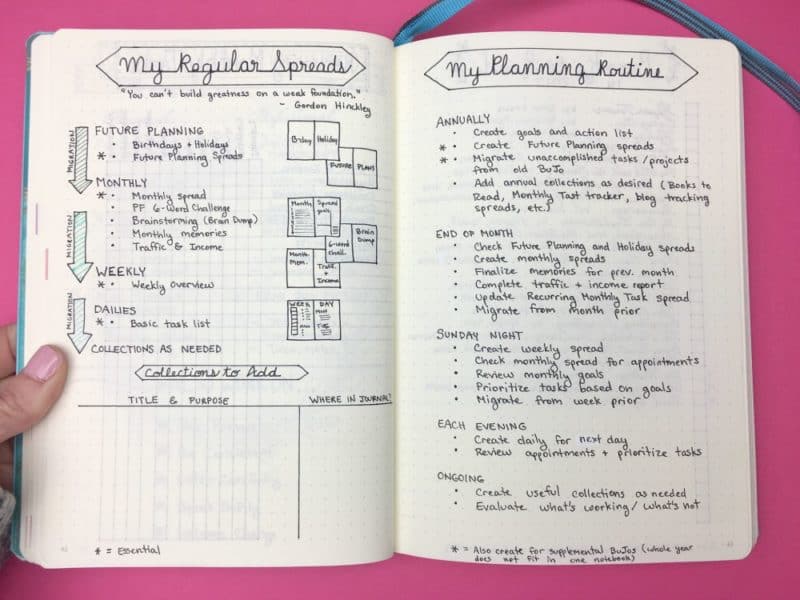 My Regular Spreads
"You can't build greatness on a weak foundation."
- Gordon Hinckley
MIGRATION
FUTURE PLANNING
• Birthdays + Holidays
* • Future Planning Spreads
B-day Holiday
FUTURE PLANS
MONTHLY
* • Monthly spread
• PF 6-Word Challenge
• Brainstorming (Brain Dump)
• Monthly memories
• Traffic & Income
Month Spread
goals
Brain
Dump
6-word
Chall.
Month.
Mem.
Traff.
+
Income
MIGRATION
WEEKLY
* • Weekly Overview
MIGRATION
DAILIES
* • Basic task list
WEEK DAY
COLLECTIONS AS NEEDED
Collections to Add
TITLE & PURPOSE WHERE IN JOURNAL?
* = Essential
My Planning Routine
ANNUALLY
• Create goals and action list
* • Create Future Planning spreads
* • Migrate unaccomplished tasks/projects
from old BuJo
• Add annual collections as desired (Books to
Read, Monthly Task tracker, blog tracking
spreads, etc.)
END OF MONTH
• Check Future Planning and Holiday spreads
• Create monthly spreads
• Finalize memories for prev. month
• Complete traffic + income report
• Update Recurring Monthly Task spread
• Migrate from month prior
SUNDAY NIGHT
• Create weekly spread
• Check monthly spread for appointments
• Review monthly goals
• Prioritize tasks based on goals
• Migrate from week prior
EACH EVENING
• Create daily for next day
• Review appointments + prioritize tasks
ONGOING
• Create useful collections as needed
• Evaluate what's working/what's not
* = Also create for supplemental BuJos (whole year
does not fit in one notebook)